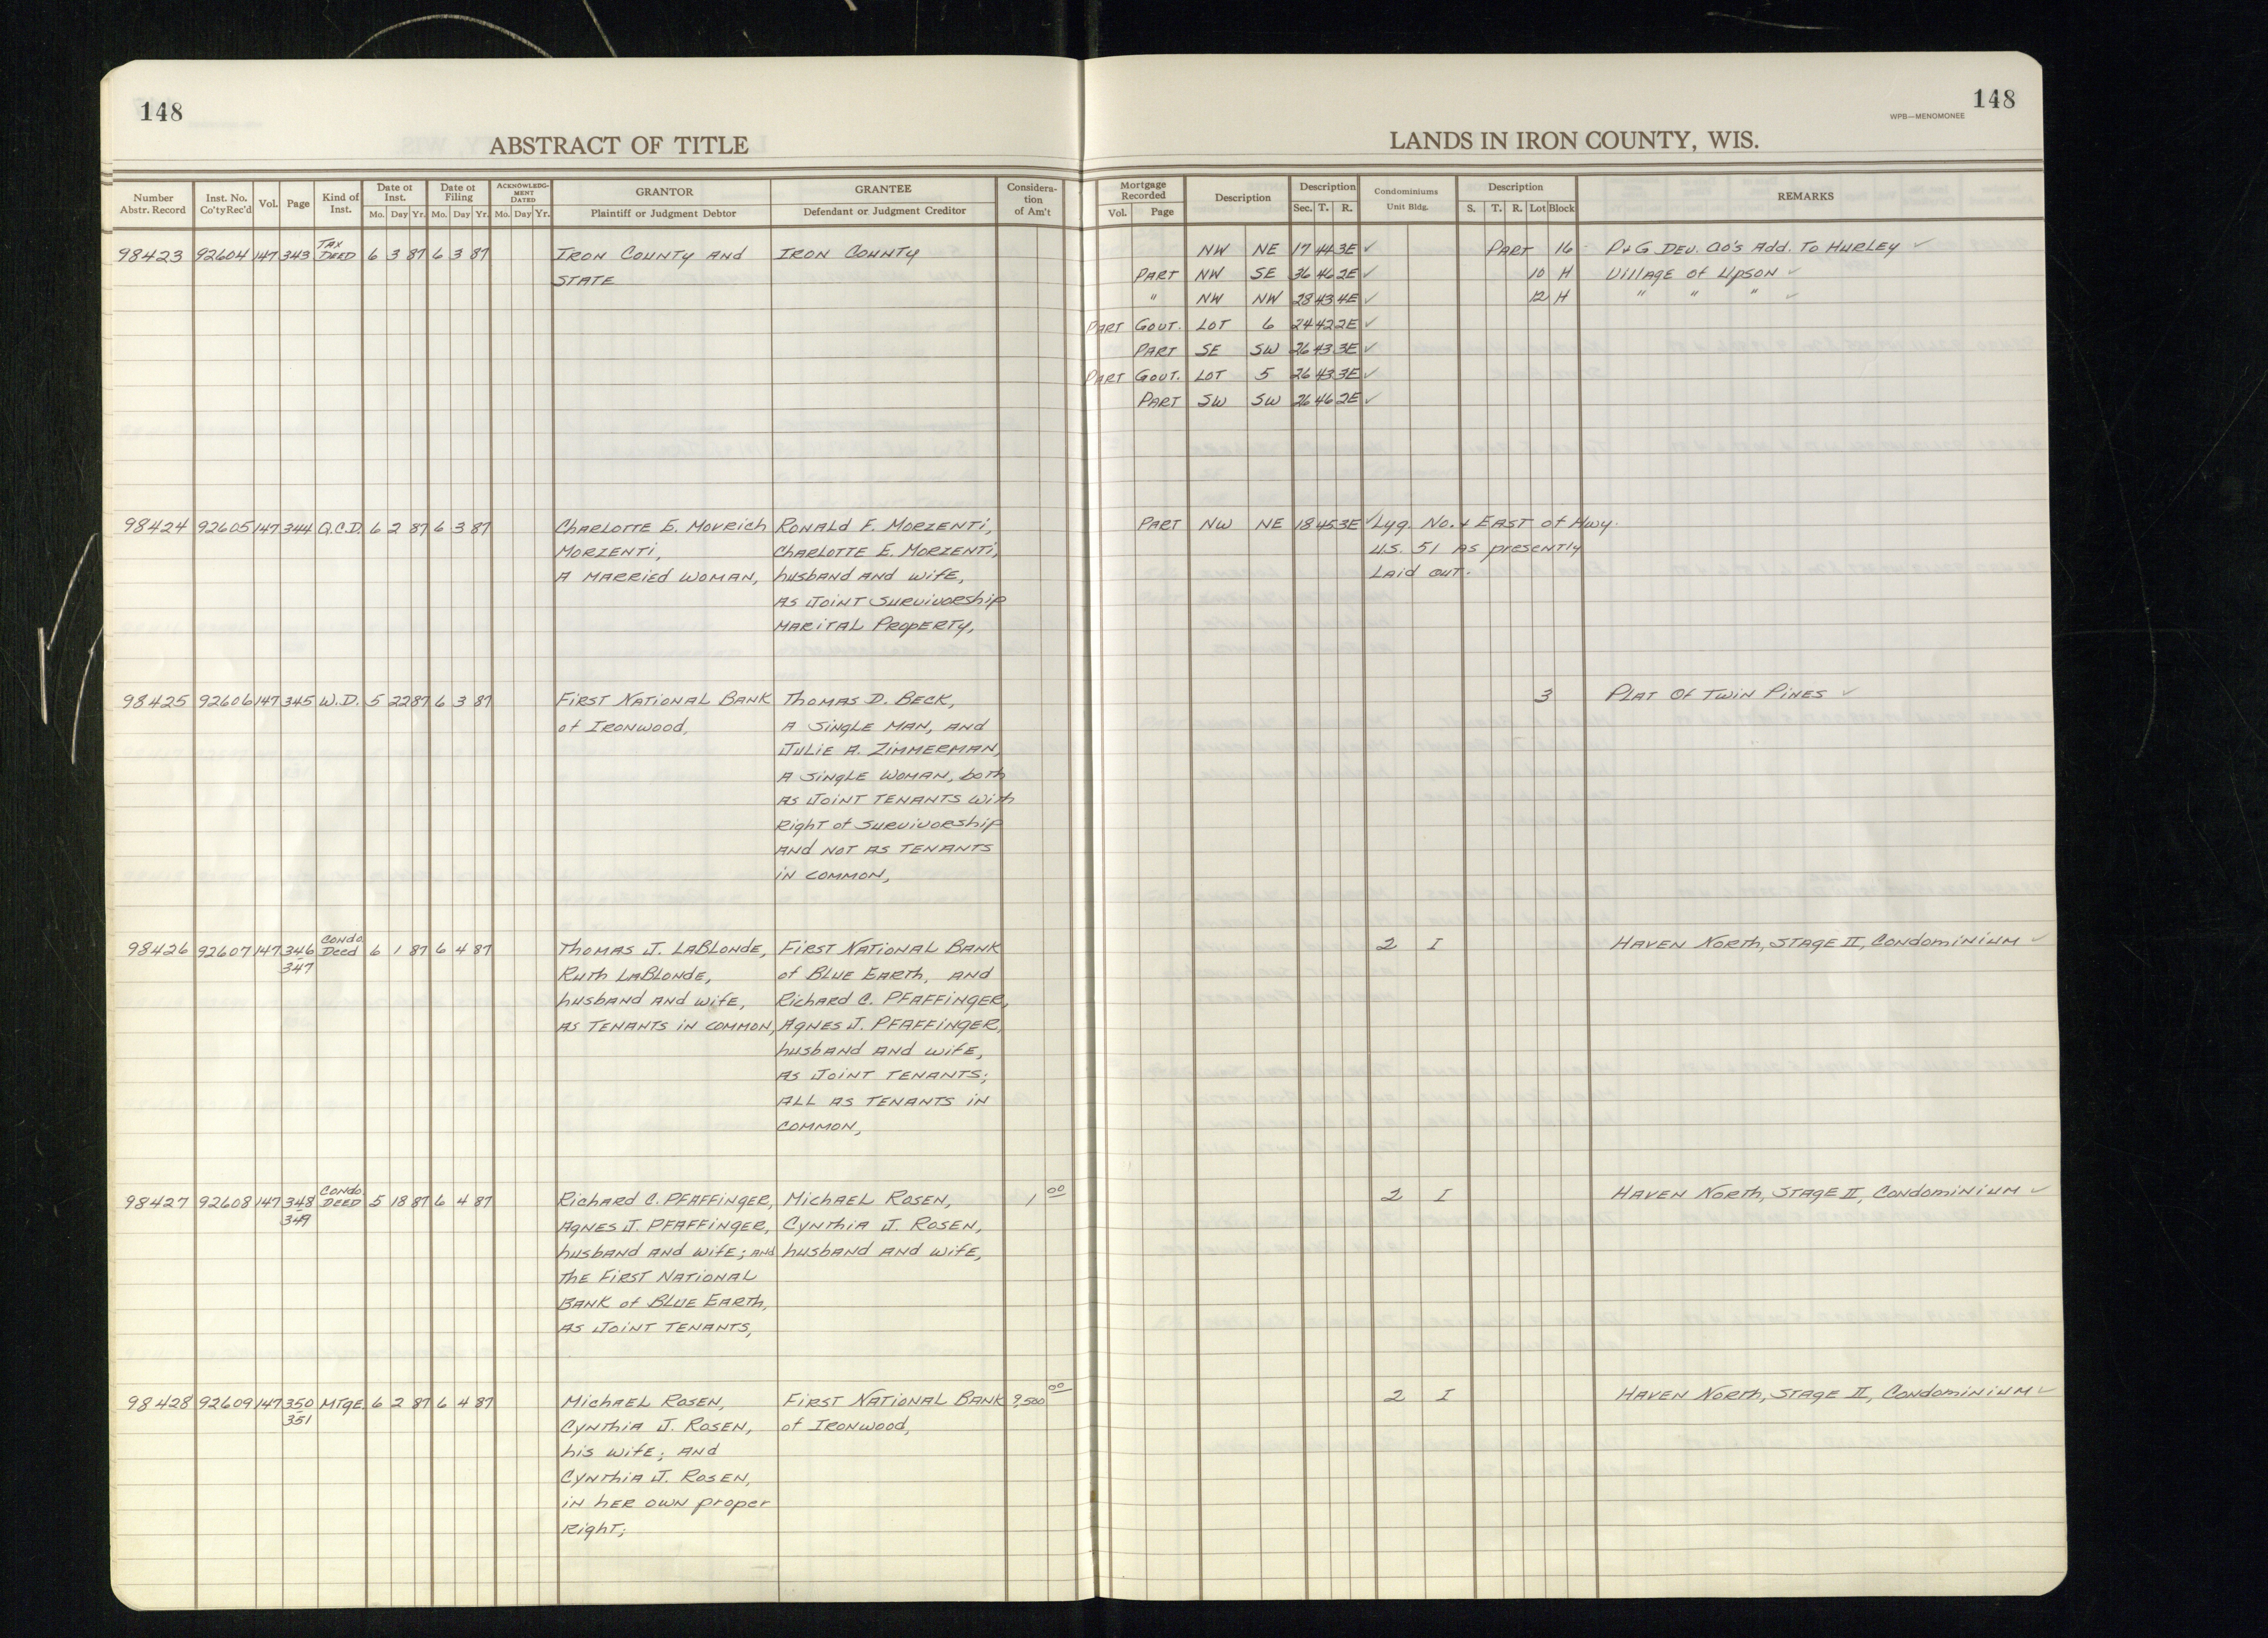 148
148
WPB—MENOMONEE
ABSTRACT OF TITLE
LANDS IN IRON COUNTY, WIS.
Number Abstr. Record
Inst. No. Co'ty Rec'd
Vol.
Page
Kind of Inst.
Date of Inst.
Mo. Day Yr.
Date of Filing
Mo. Day Yr.
ACKNOWLEDGMENT DATED
Mo. Day Yr.
GRANTOR
Plaintiff or Judgment Debtor
GRANTEE
Defendant or Judgment Creditor
Considera-
tion
of Am't
Mortgage
Recorded
Vol. Page
Description
Description
Sec. T. R.
Condominiums
Unit Bldg.
Description
S. T. R. Lot Block
REMARKS
98423 92604 147 343 TAX DEED 6 3 87 6 3 87 IRON COUNTY AND IRON COUNTY NW NE 17 44 3E ✓ PART 16 P & G DEV. CO'S Add. TO HURLEY ✓
STATE PART NW SE 36 46 2E ✓ 10 H VILLAGE OF UPSON ✓
" NW NW 28 43 4E ✓ 12 H " " " ✓
PART GOVT. LOT 6 24 42 2E ✓
PART SE SW 26 43 3E ✓
PART GOVT. LOT 5 26 43 3E ✓
PART SW SW 26 46 2E ✓
98424 92605 147 344 Q.C.D. 6 2 87 6 3 87 CHARLOTTE E. MOVRICH RONALD F. MORZENTI, PART NW NE 18 45 3E ✓ Lyg. No. & EAST of Hwy.
MORZENTI, CHARLOTTE E. MORZENTI, U.S. 51 AS presently
A MARRIED WOMAN, husband AND wife, Laid out.
AS JOINT SURVIVORSHIP
MARITAL PROPERTY,
98425 92606 147 345 W.D. 5 22 87 6 3 87 FIRST NATIONAL BANK THOMAS D. BECK, 3 PLAT OF TWIN PINES ✓
of IRONWOOD, A SINGLE MAN, AND
JULIE A. ZIMMERMAN,
A SINGLE WOMAN, both
AS JOINT TENANTS with
Right of SURVIVORSHIP
AND NOT AS TENANTS
IN COMMON,
98426 92607 147 346 347 CONDO. Deed 6 1 87 6 4 87 THOMAS J. LABLONDE, FIRST NATIONAL BANK 2 I HAVEN NORTH, STAGE II, CONDOMINIUM ✓
RUTH LABLONDE, of BLUE EARTH, AND
husband AND wife, Richard C. PFAFFINGER,
AS TENANTS IN COMMON, AGNES J. PFAFFINGER,
husband AND wife,
AS JOINT TENANTS;
ALL AS TENANTS IN
COMMON,
98427 92608 147 348 349 CONDO. DEED 5 18 87 6 4 87 Richard C. PFAFFINGER, MICHAEL ROSEN, 1 00 2 I HAVEN NORTH, STAGE II, CONDOMINIUM ✓
AGNES J. PFAFFINGER, CYNTHIA J. ROSEN,
husband AND wife; AND husband AND wife,
THE FIRST NATIONAL
BANK of BLUE EARTH,
AS JOINT TENANTS,
98428 92609 147 350 351 MTGE 6 2 87 6 4 87 MICHAEL ROSEN, FIRST NATIONAL BANK 9,500 00 2 I HAVEN NORTH, STAGE II, CONDOMINIUM ✓
CYNTHIA J. ROSEN, of IRONWOOD,
his wife; AND
CYNTHIA J. ROSEN,
IN HER OWN proper
Right;